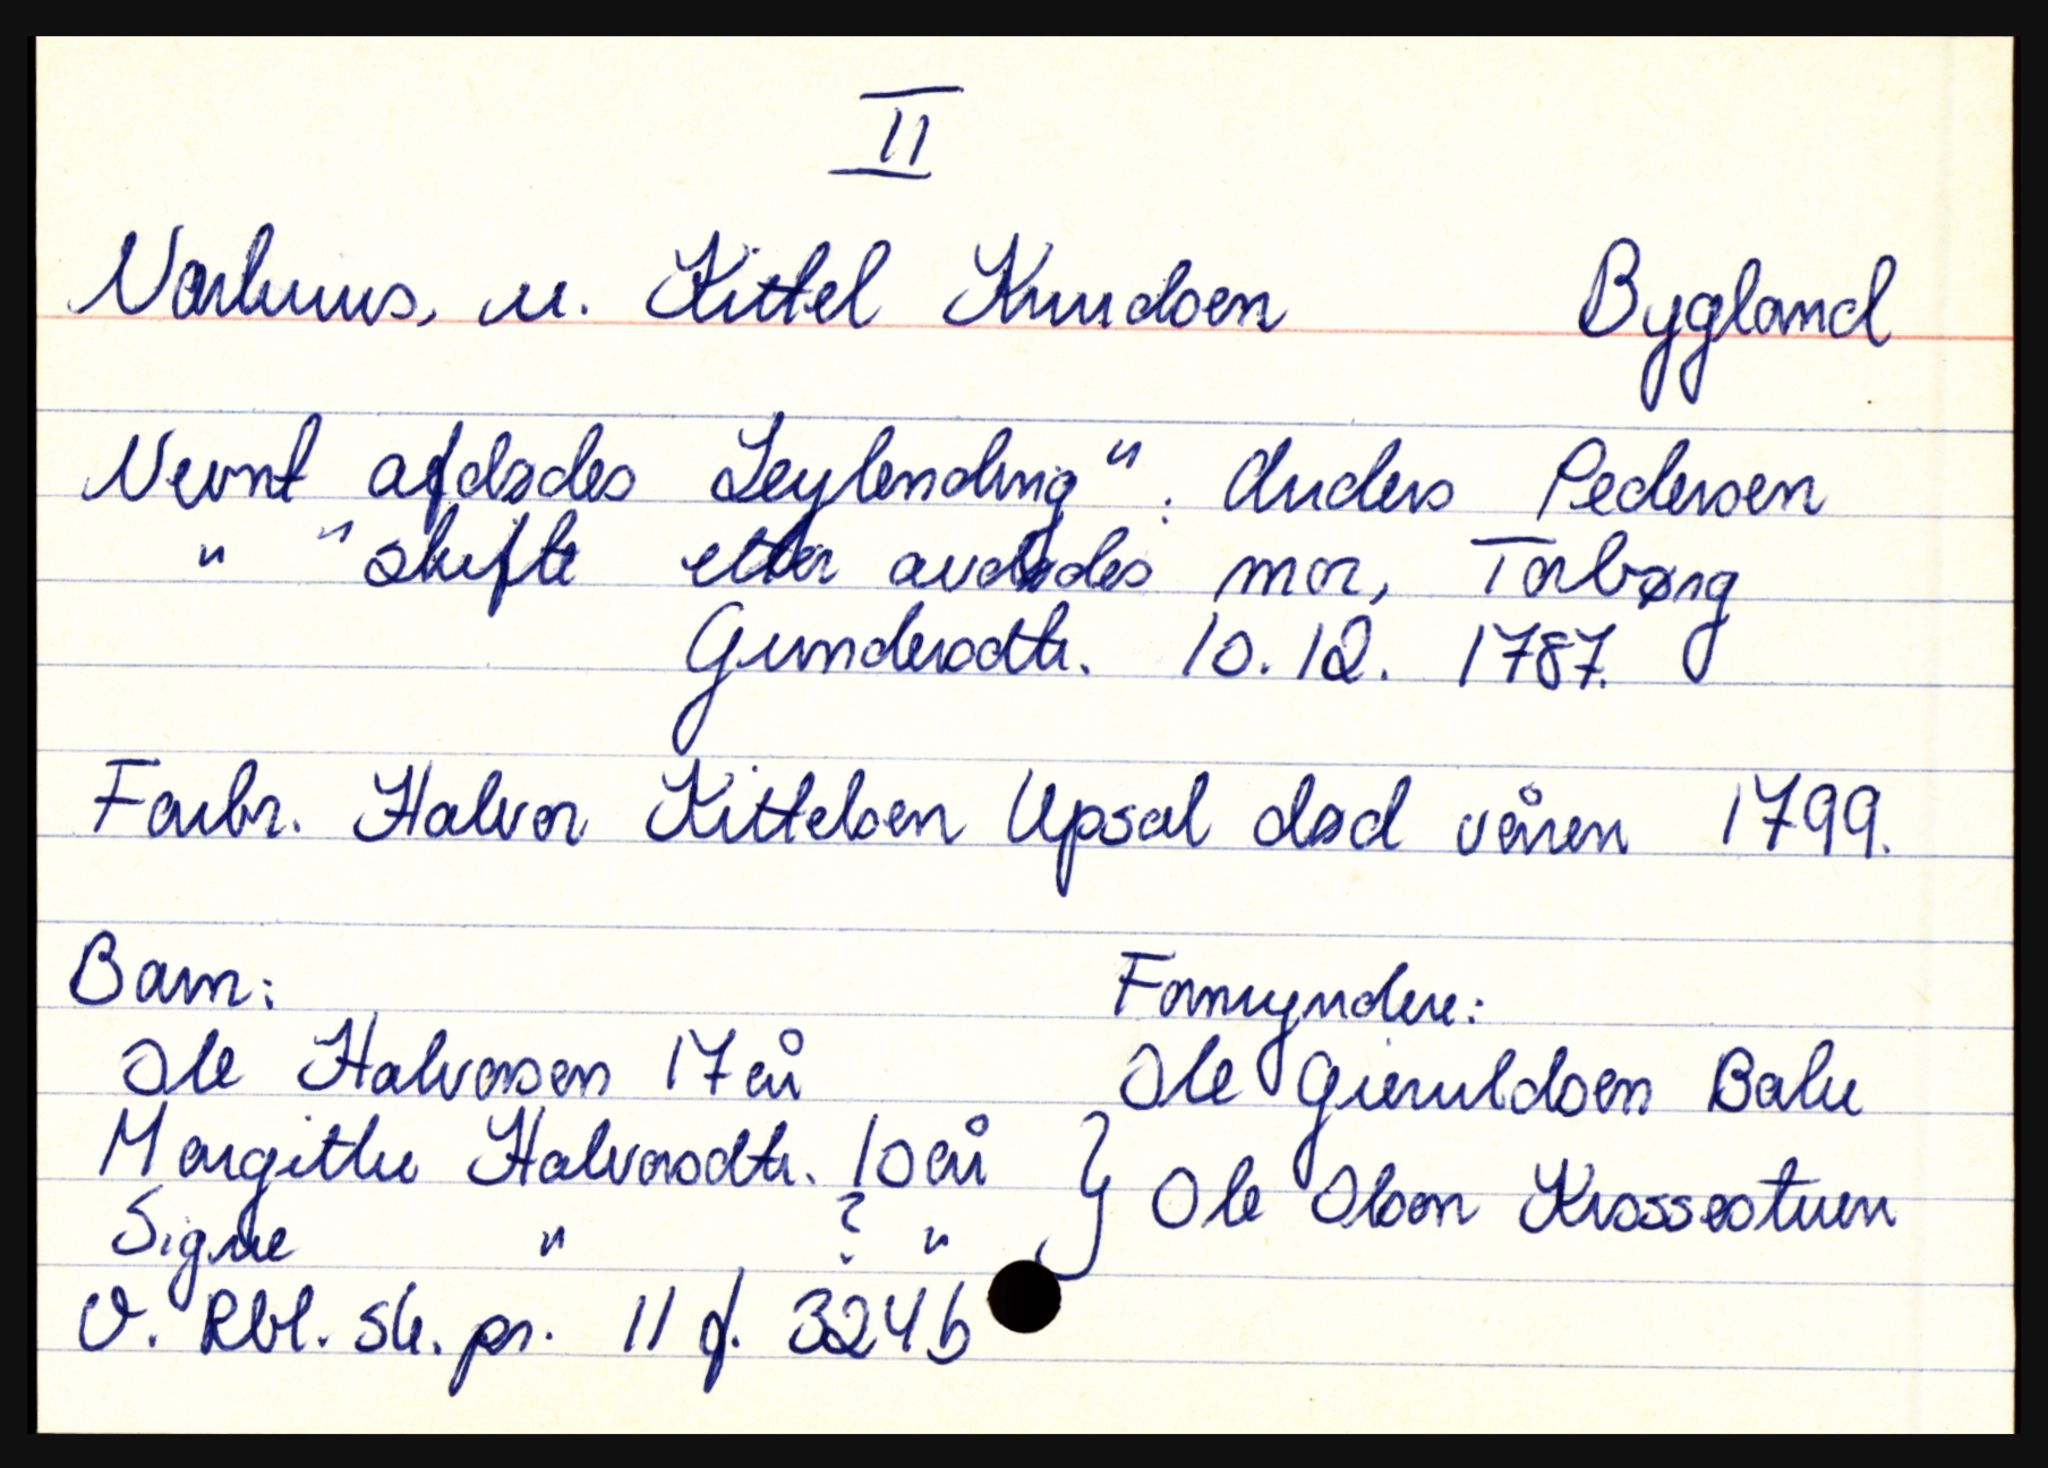 II
Narhuus, u. Kittel Knudsen Bygland
Nevnt afdødes Leylending": Anders Pedersen
" " skifte etter avdødes mor, Torbørg
Gundersdtr. 10.12. 1787.
Farbr. Halvor Kittelsen Upsal død våren 1799.
Barn: Formyndere:
Ole Halvorsen 17 år Ole Gieruldsen Bahu
Margithe Halvorsdtr. 10 år } Ole Olsen Krossestuen
Signe " ? "
V. Rbl. sk. pr. 11 f. 324b